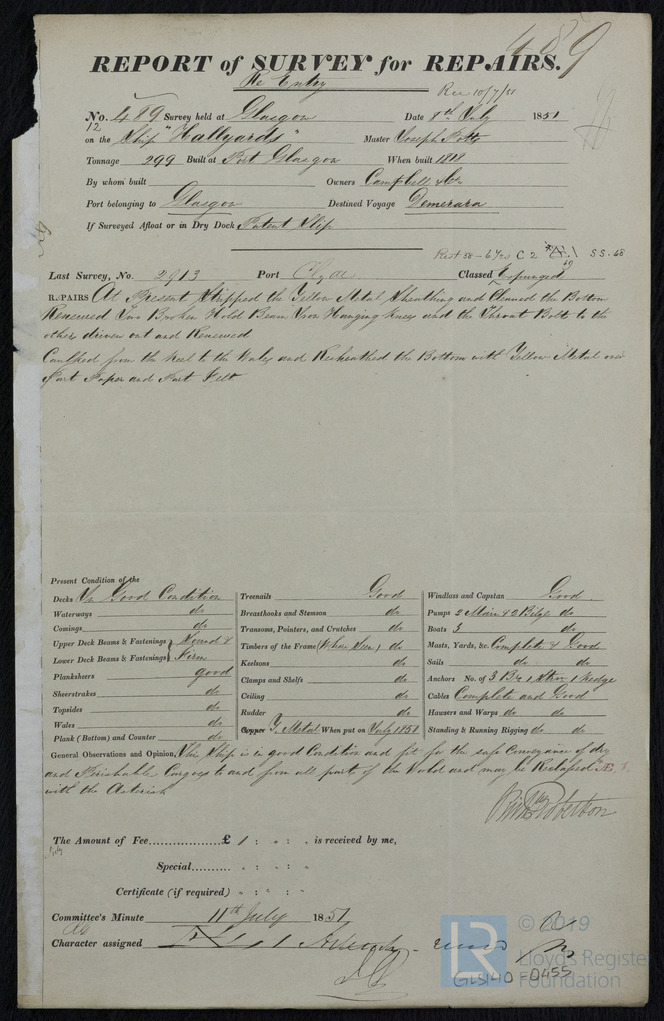 489
REPORT of SURVEY for REPAIRS.
Re Entry
Rec 10/7/51
No. 489 Survey held at Glasgow Date 8th July 1851
12
on the Ship "Hallyards" Master Joseph Potts
Tonnage 299 Built at Port Glasgow When built 1818
By whom built Owners Campbell & Co
Port belonging to Glasgow Destined Voyage Demerara
If Surveyed Afloat or in Dry Dock Patent Slip
Rest 58 - 6 yrs C 2 SS-68
Last Survey, No. 2913 Port Clyde Classed Expunged
REPAIRS At Present Stripped the Yellow Metal Sheathing and Cleaned the Bottom
Renewed Two Broken Hold Beam Iron Hanging knees and the Throat Bolts to the
others driven out and Renewed
Caulked from the keel to the Wales and Resheathed the Bottom with Yellow Metal over
Part Paper and Part Felt
Present Condition of the
Decks In Good Condition
Waterways do
Comings do
Upper Deck Beams & Fastenings Sound &
Lower Deck Beams & Fastenings Firm
Planksheers good
Sheerstrakes do
Topsides do
Wales do
Plank (Bottom) and Counter do
Treenails Good
Breasthooks and Stemson do
Transoms, Pointers, and Crutches do
Timbers of the Frame (When Seen) do
Keelsons do
Clamps and Shelfs do
Ceiling do
Rudder do
Copper Y. Metal When put on July 1851
Windlass and Capstan Good
Pumps 2 Main & 2 Bilge do
Boats 3 do
Masts, Yards, &c. Complete & Good
Sails do do
Anchors No. of 3 Br 1 Strm 1 Kedge
Cables Complete and Good
Hawsers and Warps do do
Standing & Running Rigging do do
General Observations and Opinion, This Ship is in good Condition and fit for the safe Conveyance of dry
and Perishable Cargoes to and from all parts of the World and may be Reclassed Æ 1
with the Asterisk
The Amount of Fee £ 1 : " : " is received by me,
Special " : " : "
Certificate (if required) " : " : "
Committee's Minute 11th July 1851
Character assigned
GLS140-0455
© 2019
LR
Lloyd's Register
Foundation